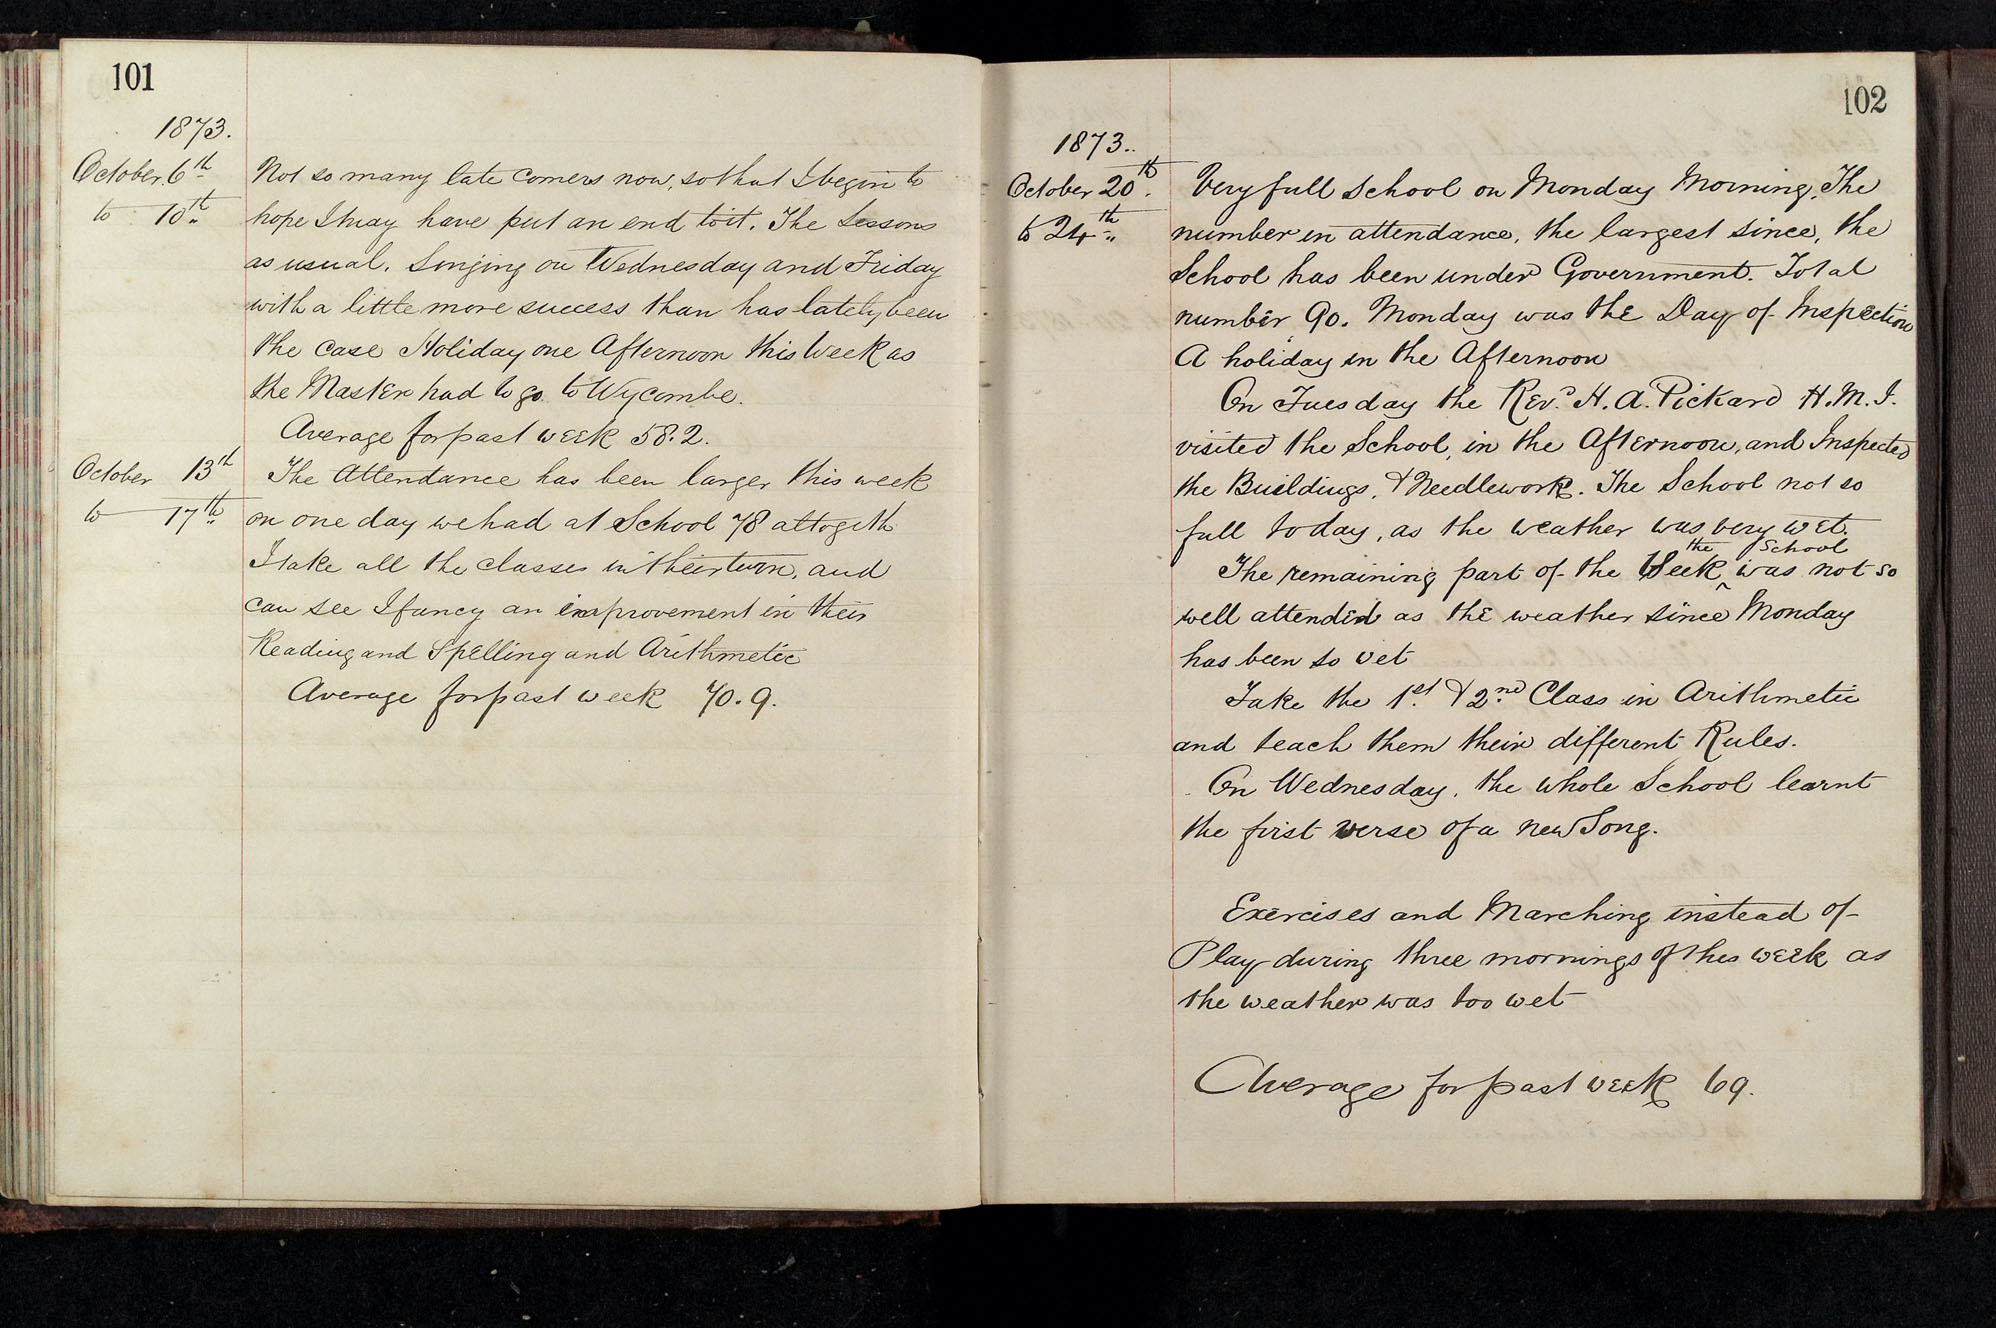 101
1873.
October 6th
to 10th
Not so many late comers now, so that I begin to
hope I may have put an end to it. The Lessons
as usual. Singing on Wednesday and Friday
with a little more success than has lately been
the case Holiday one Afternoon this Week as
the Master had to go to Wycombe.
Average for past week 58.2.
October 13th
to 17th
The Attendance has been larger this week
on one day we had at School 78 altogeth
I take all the classes in their turn, and
can see I fancy an improvement in their
Reading and Spelling and Arithmetic
Average for past week 70.9.
102
1873..
October 20th.
to 24th
Very full School on Monday Morning. The
number in attendance, the largest since, the
School has been under Government. Total
number 90. Monday was the Day of Inspection
A holiday in the Afternoon
On Tuesday the Revd H. A. Pickard H.M.I.
visited the School, in the Afternoon, and Inspected
the Buildings, & Needlework. The School not so
full today, as the weather was very wet.
The remaining part of the Week ^ the School was not so
well attended as the weather since Monday
has been so wet
Take the 1st. & 2nd. Class in Arithmetic
and teach them their different Rules.
On Wednesday, the whole School learnt
the first verse of a new Song.
Exercises and Marching instead of
Play during three mornings of this week as
the weather was too wet
Average for past week 69.